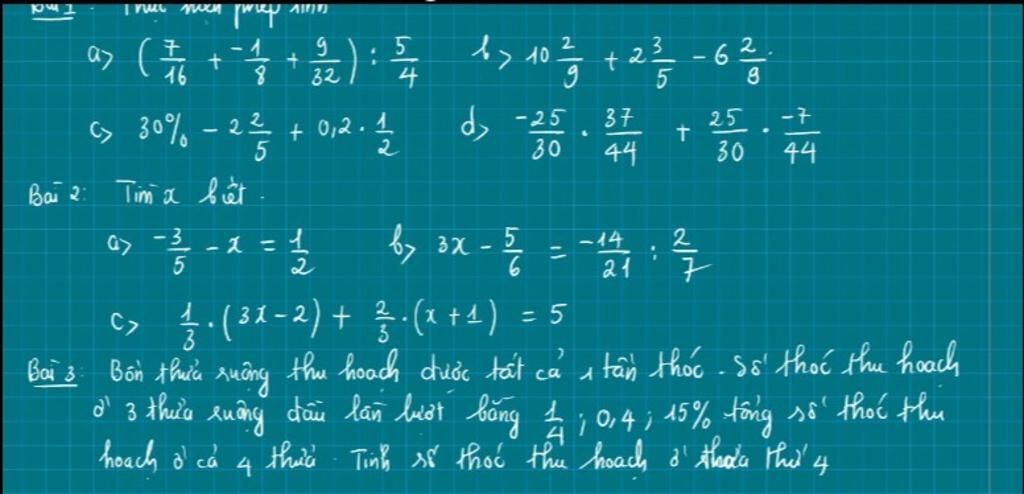 Bài 1: Thực hiện phép tính
a> (7/16 + -1/8 + 9/32) : 5/4 b> 10 2/9 + 2 3/5 - 6 2/9
c> 30% - 2 2/5 + 0,2 . 1/2 d> -25/30 . 37/44 + 25/30 . -7/44
Bài 2: Tìm x biết.
a> -3/5 - x = 1/2 b> 3x - 5/6 = -14/21 : 2/7
c> 1/3 . (3x - 2) + 2/3 . (x + 1) = 5
Bài 3: Bốn thửa ruộng thu hoạch được tất cả 1 tấn thóc. Số thóc thu hoạch
ở 3 thửa ruộng đầu lần lượt bằng 1/4; 0,4; 15% tổng số thóc thu
hoạch ở cả 4 thửa. Tính số thóc thu hoạch ở thửa thứ 4